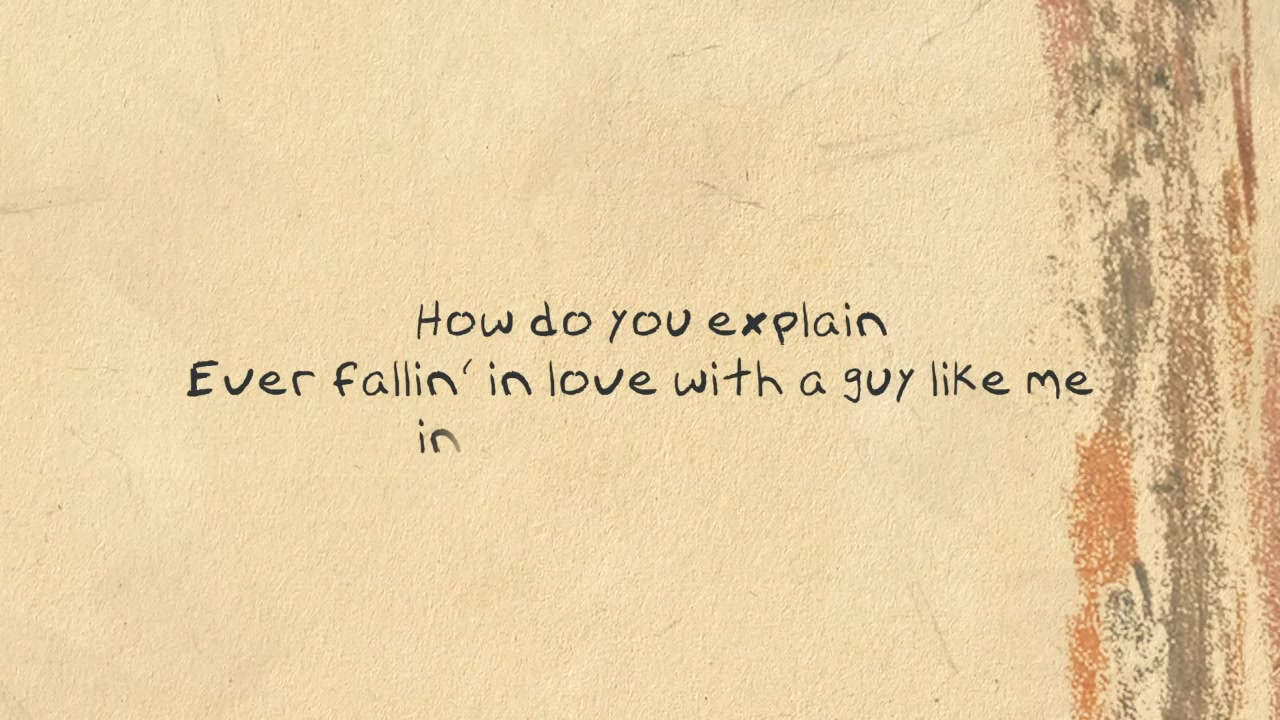 How do you explain
Ever fallin' in love with a guy like me
in